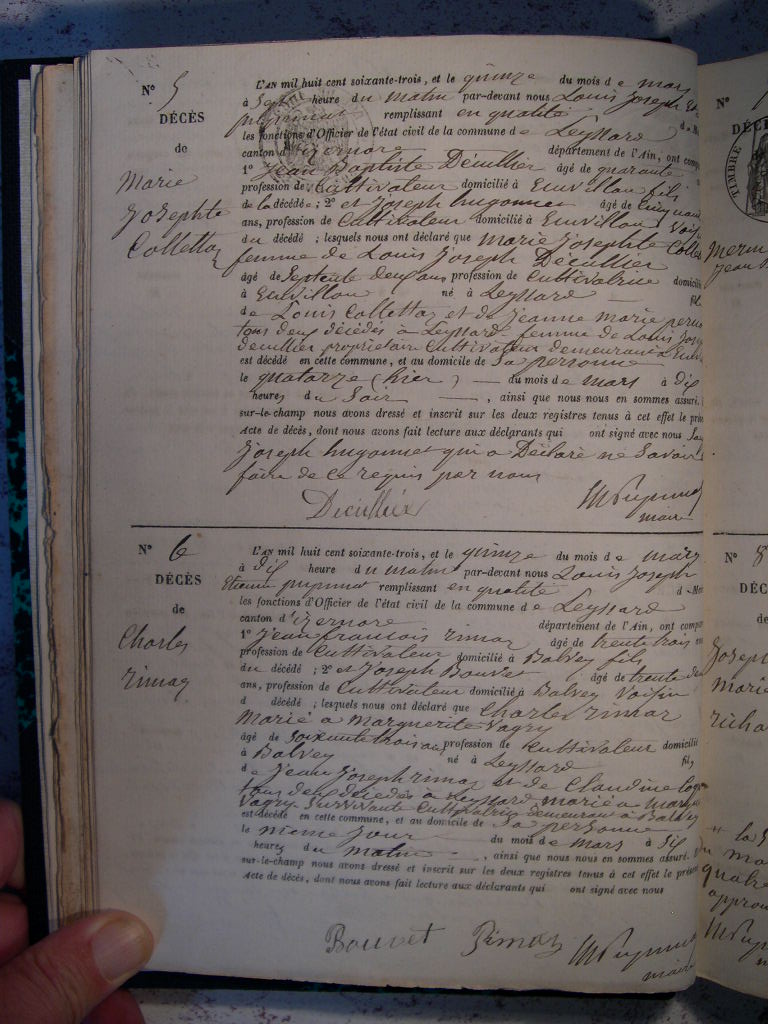 N° 5
DÉCÈS
de
Marie
Josephte
Collettaz
L'AN mil huit cent soixante-trois, et le quinze du mois de mars
à Sept heure du matin par-devant nous Louis Joseph
remplissant en qualité
les fonctions d'Officier de l'état civil de la commune de Leyssard
canton d'izernore département de l'Ain, ont comp
1° Jean Baptiste Décullier âgé de quarante
profession de Cultivateur domicilié à Esuvillon fils
de la décédée; 2° et Joseph hugonnet âgé de Cinquante
ans, profession de Cultivateur domicilié à Esuvillon Voisin
du décédé; lesquels nous ont déclaré que Marie Josephte Collet
femme de Louis Joseph Décullier
âgé de Septente deux ans profession de Cultivatrice domicilié
à Esuvillon né à Leyssard fil
de Louis Collettaz et de Jeanne Marie
tous deux décédés à Leyssard, femme de Louis Joseph
Décullier propriétaire Cultivateur demeurant à
est décédé en cette commune, et au domicile de Sa personne
le quatorze (hier) du mois de mars à dix
heures du Soir, ainsi que nous nous en sommes assuré.
sur-le-champ nous avons dressé et inscrit sur les deux registres tenus à cet effet le pré
Acte de décès, dont nous avons fait lecture aux déclarants qui ont signé avec nous
Joseph hugonnet qui a Déclaré ne Savoir
faire de ce requis par nous
maire
N° 6
DÉCÈS
de
Charles
rimaz
L'AN mil huit cent soixante-trois, et le quinze du mois de mars
à dix heure du matin par-devant nous Louis Joseph
Etienne remplissant en qualité d
les fonctions d'Officier de l'état civil de la commune de Leyssard
canton d'izernore département de l'Ain, ont comp
1° Jean francois rimaz âgé de trente trois
profession de Cultivateur domicilié à Balvey fils
du décédé; 2° et Joseph Bouvet âgé de trente
ans, profession de Cultivateur domicilié à Balvey Voisin
d décédé; lesquels nous ont déclaré que Charles rimaz
Marié a Marguerite Vagry
âgé de Soixante trois ans profession de Cultivateur domicilié
à Balvey né à Leyssard fil
de Jean Joseph rimaz et de Claudine
tous deux décédés à Leyssard marié a
Vagry Survivante Cultivatrice demeurant à Balvey
est décédé en cette commune, et au domicile de Sa personne
le meme jour du mois de mars à Six
heures du matin, ainsi que nous nous en sommes assuré.
sur-le-champ nous avons dressé et inscrit sur les deux registres tenus à cet effet le prése
Acte de décès, dont nous avons fait lecture aux déclarants qui ont signé avec nous
Bouvet Rimaz
maire
N°
DÉC
TIMBRE
N° 8
DÉC
de
Joseph
marie